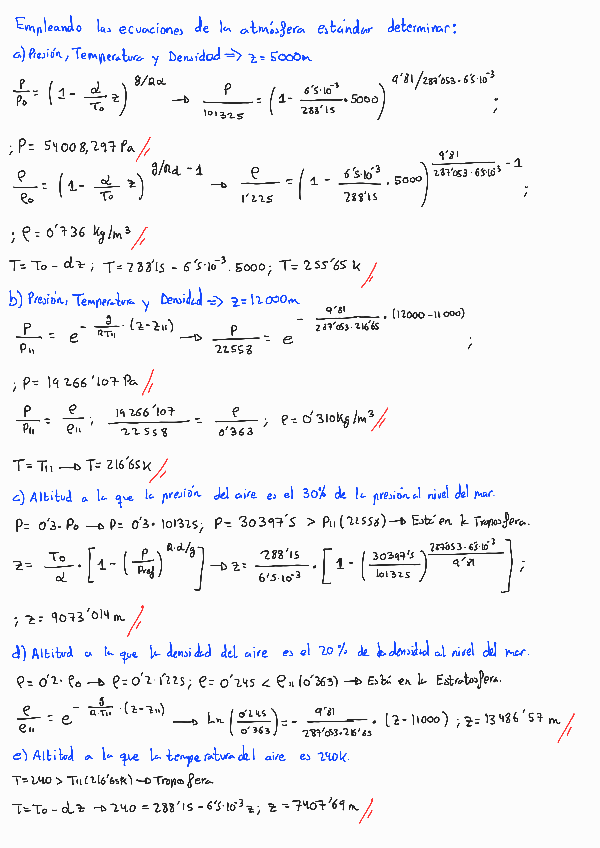 Empleando las ecuaciones de la atmósfera estándar determinar:
a) Presión, Temperatura y Densidad => z = 5000m
P/P₀ = (1 - α/T₀ z)^(g/Rα) → P/101325 = (1 - 6'5·10⁻³/288'15 · 5000)^(9'81/287'053·6'5·10⁻³) ;
; P = 54008,297 Pa //
ρ/ρ₀ = (1 - α/T₀ z)^(g/Rα - 1) → ρ/1'225 = (1 - 6'5·10⁻³/288'15 · 5000)^(9'81/287'053·6'5·10⁻³ - 1) ;
; ρ = 0'736 kg/m³ //
T = T₀ - αz ; T = 288'15 - 6'5·10⁻³ · 5000 ; T = 255'65 K //
b) Presión, Temperatura y Densidad => z = 12000m
P/P₁₁ = e^(- g/RT₁₁ · (z - z₁₁)) → P/22558 = e^(- 9'81/287'053·216'65 · (12000 - 11000)) ;
; P = 19266'107 Pa //
P/P₁₁ = ρ/ρ₁₁ ; 19266'107/22558 = ρ/0'363 ; ρ = 0'310 kg/m³ //
T = T₁₁ → T = 216'65 K //
c) Altitud a la que la presión del aire es el 30% de la presión al nivel del mar.
P = 0'3 · P₀ → P = 0'3 · 101325 ; P = 30397'5 > P₁₁ (22558) → Está en la Troposfera.
z = T₀/α · [1 - (P/Pref)^(R·α/g)] → z = 288'15/6'5·10⁻³ · [1 - (30397'5/101325)^(287'053·6'5·10⁻³/9'81)] ;
; z = 9073'014 m //
d) Altitud a la que la densidad del aire es el 20% de la densidad al nivel del mar.
ρ = 0'2 · ρ₀ → ρ = 0'2 · 1'225 ; ρ = 0'245 < ρ₁₁ (0'363) → Está en la Estratosfera.
ρ/ρ₁₁ = e^(- g/R·T₁₁ · (z - z₁₁)) → Ln (0'245/0'363) = - 9'81/287'053·216'65 · (z - 11000) ; z = 13486'57 m //
e) Altitud a la que la temperatura del aire es 240K.
T = 240 > T₁₁ (216'65K) → Troposfera
T = T₀ - αz → 240 = 288'15 - 6'5·10⁻³ z ; z = 7407'69 m //